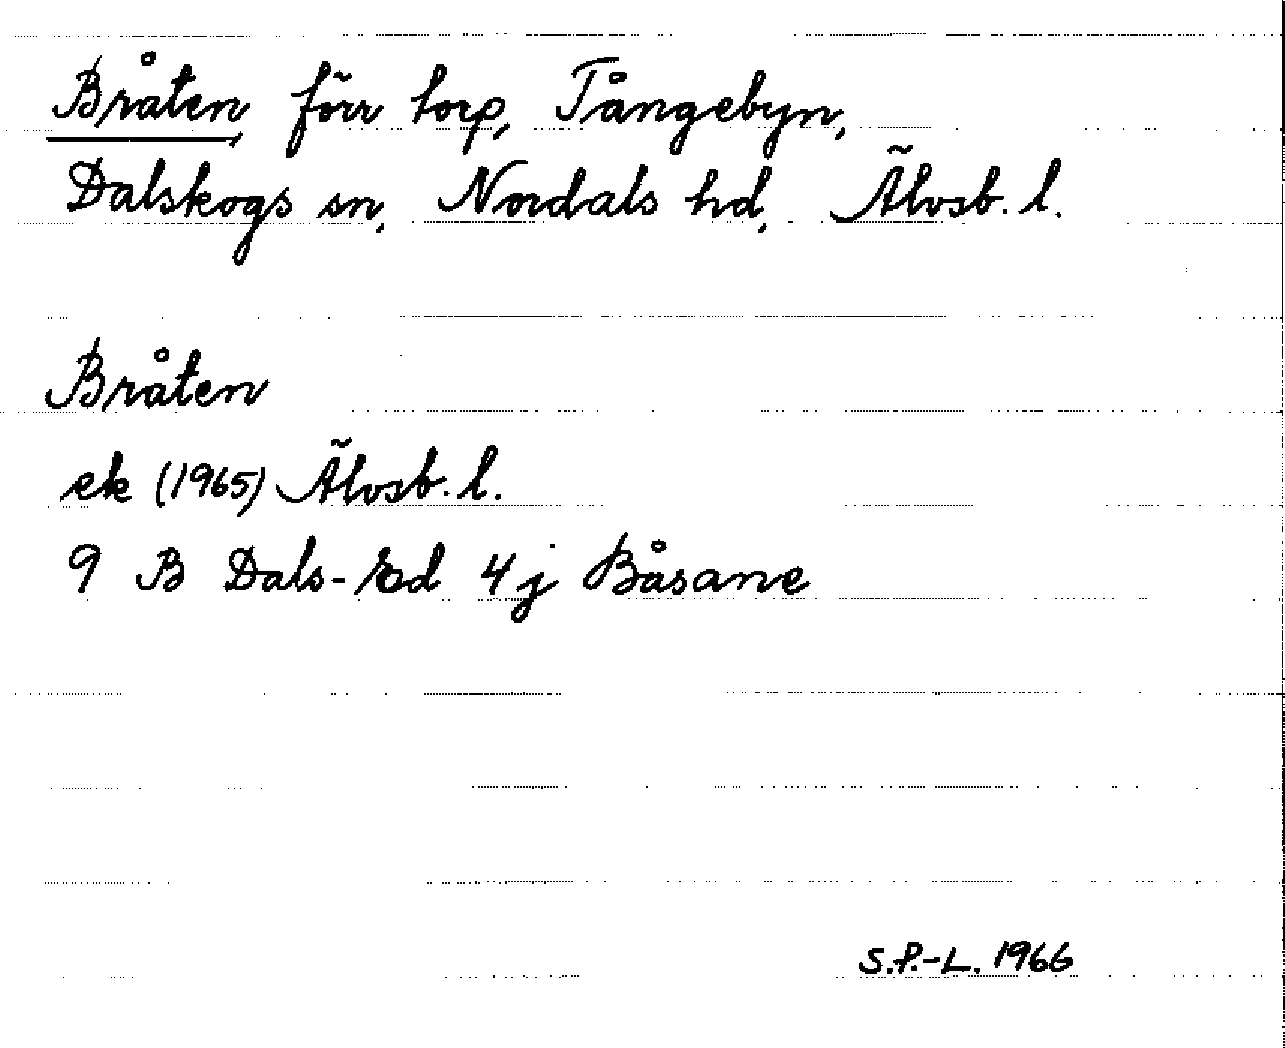 Bråten, förr torp, Tångebyn,
Dalskogs sn, Nordals hd, Älvsb. l.
Bråten
ek (1965) Älvsb. l.
9 B Dals-Ed 4j Båsane
S.P.-L. 1966